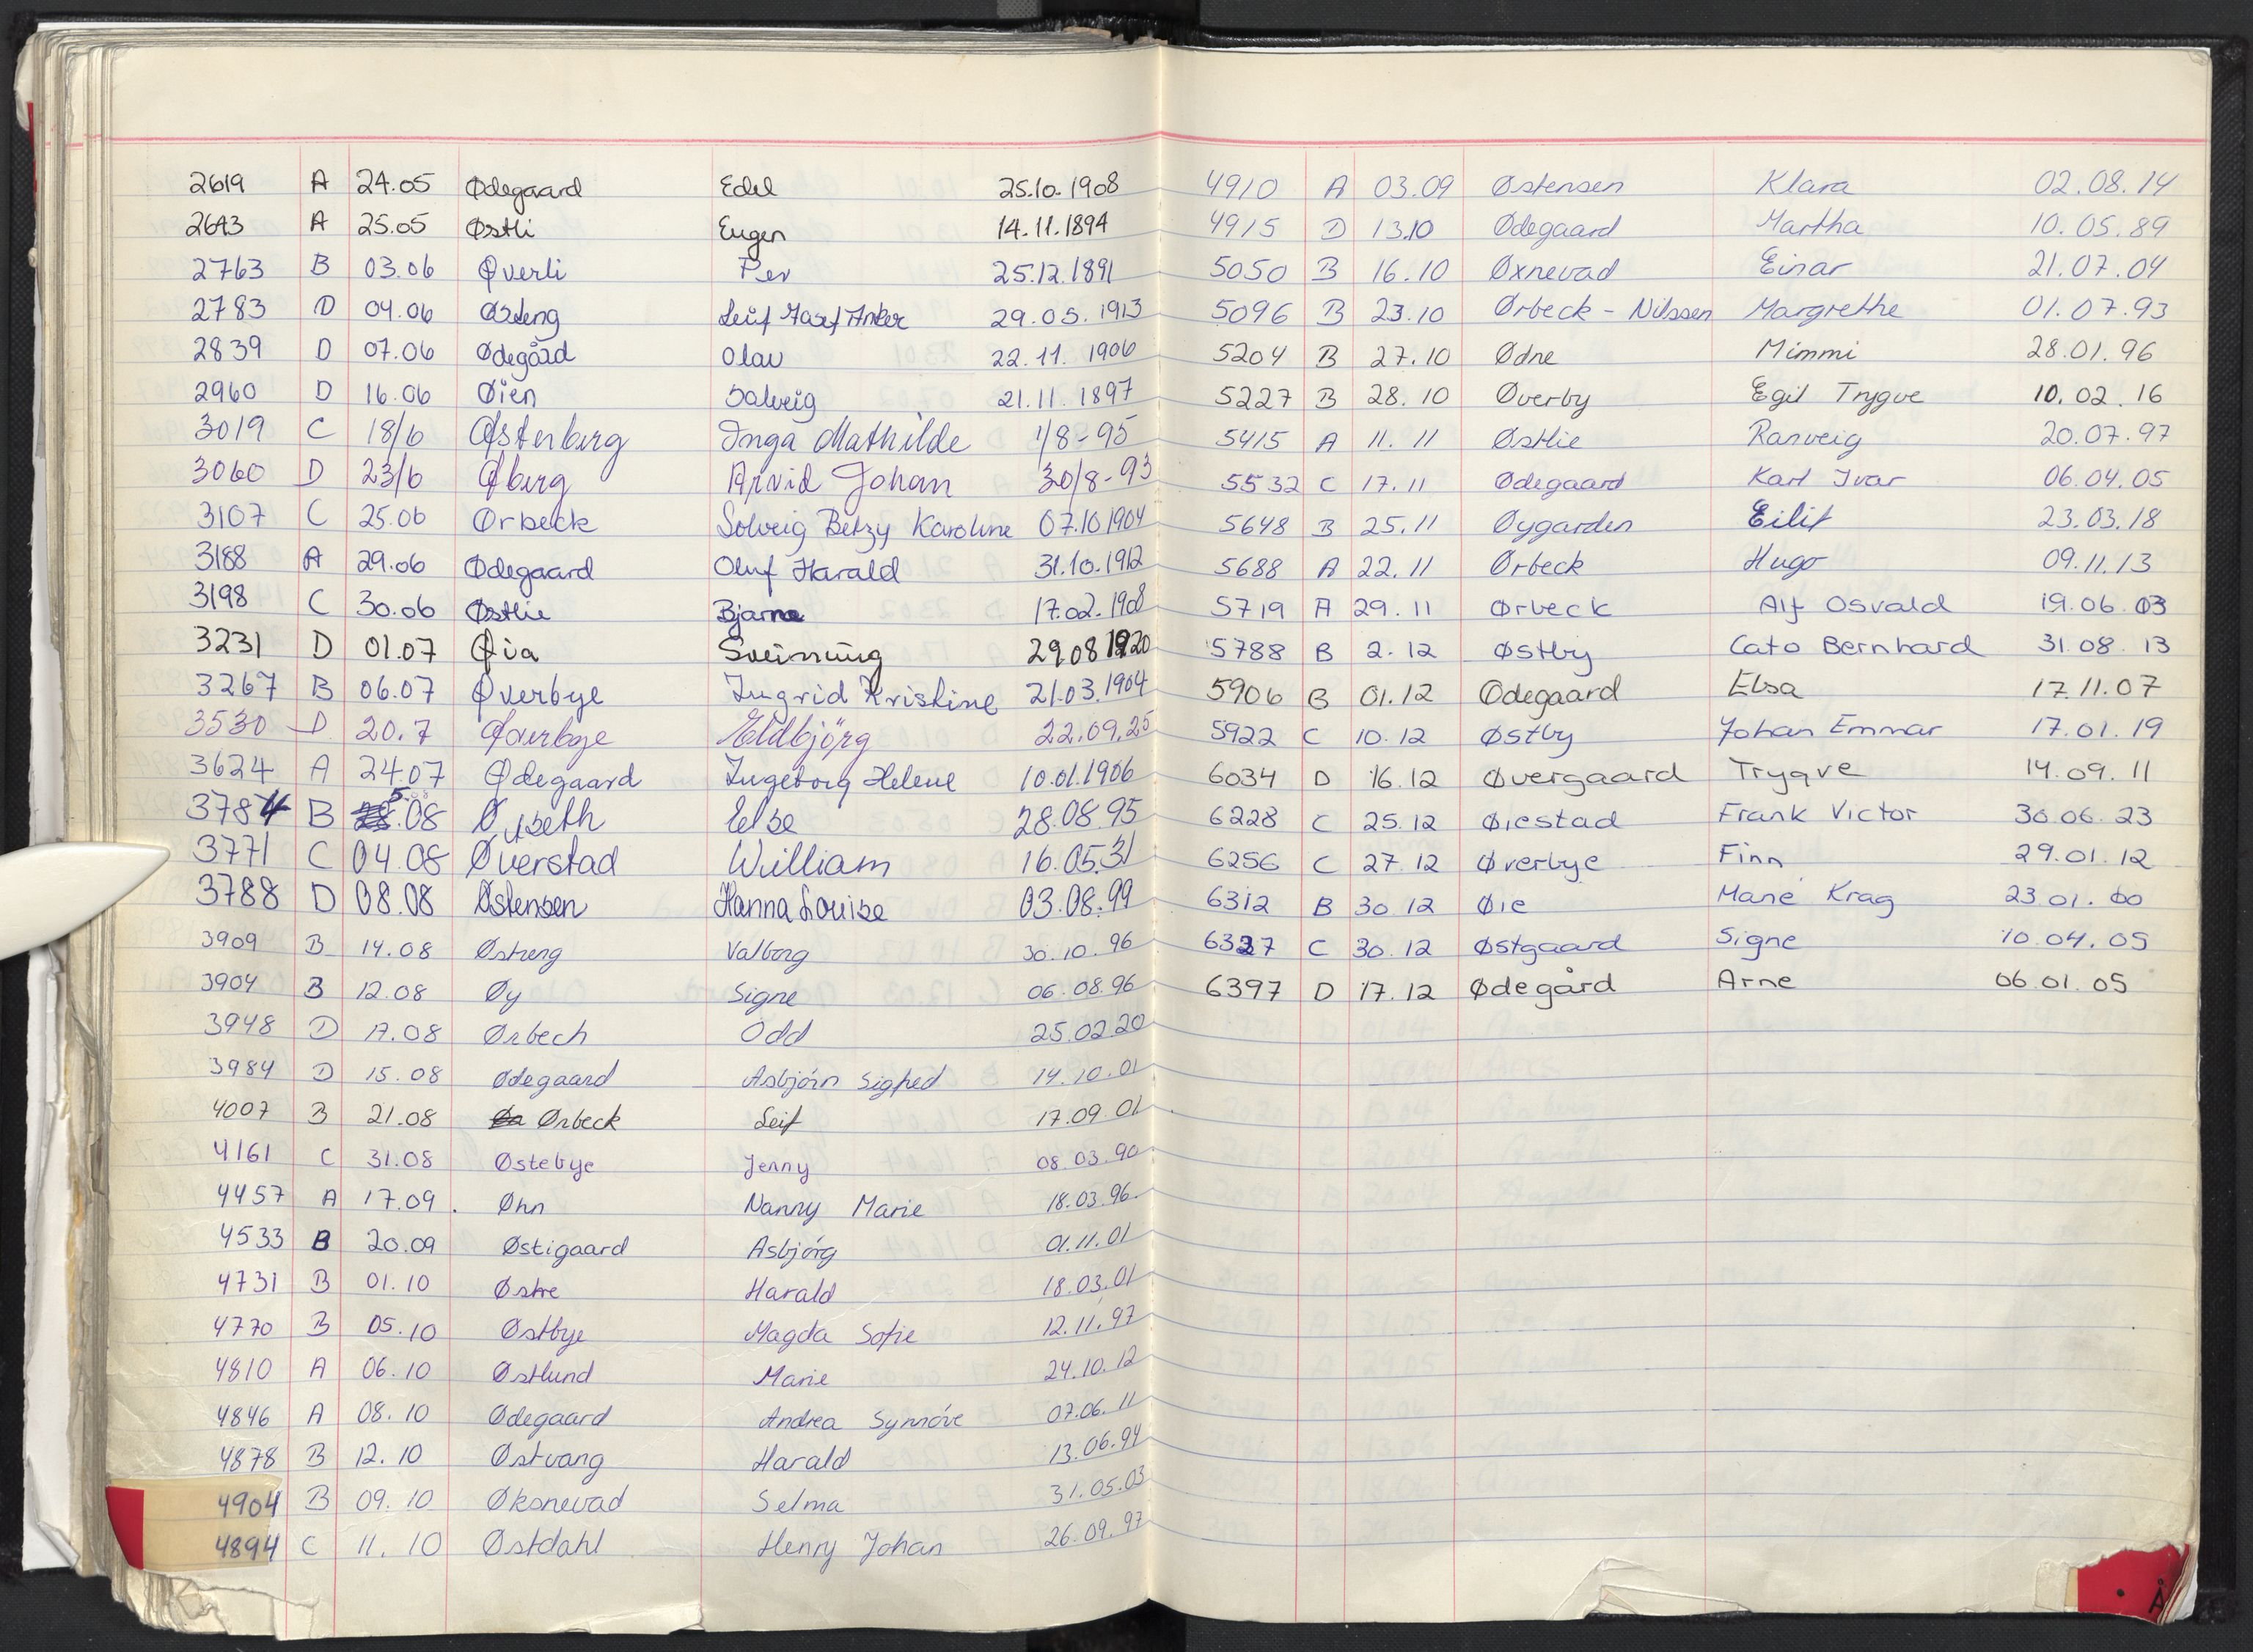 2619 A 24.05 Ødegaard Edel 25.10.1908
2643 A 25.05 Østli Eugen 14.11.1894
2763 B 03.06 Øverli Per 25.12.1891
2783 D 04.06 Østeng Leif Josef Anker 29.05.1913
2839 D 07.06 Ødegård Olav 22.11.1906
2960 D 16.06 Øien Solveig 21.11.1897
3019 C 18/6 Østerberg Inga Mathilde 1/8-95
3060 D 23/6 Øberg Arvid Johan 30/8-93
3107 C 25.06 Ørbeck Solveig Betzy Karoline 07.10 1904
3188 A 29.06 Ødegaard Oluf Harald 31.10.1912
3198 C 30.06 Østlie Bjarne 17.02.1908
3231 D 01.07 Øia Sveinung 29 08 1920
3267 B 06.07 Øverbye Ingrid Kristine 21.03.1904
3530 D 20.7 Øverbye Eldbjörg 22.09.25
3624 A 24.07 Ødegaard Ingeborg Helene 10.01.1906
3784 B 5.08 Øyseth Else 28.08.95
3771 C 04.08 Øverstad William 16.05.31
3788 D 08.08 Østensen Hanna Louise 03.08.99
3909 B 14.08 Østreng Valborg 30.10.96
3904 B 12.08 Øy Signe 06.08.96
3948 D 17.08 Ørbech Odd 25.02.20
3984 D 15.08 Ødegaard Asbjørn Sigfred 14.10.01
4007 B 21.08 Ørbeck Leif 17.09.01
4161 C 31.08 Østebye Jenny 08.03.90
4457 A 17.09. Øhn Nanny Marie 18.03.96
4533 B 20.09 Østigaard Asbjórg 01.11.01
4731 B 01.10 Østre Harald 18.03.01
4770 B 05.10 Østbye Magda Sofie 12.11.97
4810 A 06.10 Østlund Marie 24.10.12
4846 A 08.10 Ødegaard Andrea Synnóve 07.06.11
4878 B 12.10 Østvang Harald 13.06.94
4904 B 09.10 Øksnevad Selma 31.05.03
4894 C 11.10 Østdahl Henry Johan 26.09.97
4910 A 03.09 Østensen Klara 02.08.14
4915 D 13.10 Ødegaard Martha 10.05.89
5050 B 16.10 Øxnevad Einar 21.07.04
5096 B 23.10 Ørbeck - Nilssen Margrethe 01.07.93
5204 B 27.10 Ødne Mimmi 28.01.96
5227 B 28.10 Øverby Egil Trygve 10.02.16
5415 A 11.11 Østlie Ranveig 20.07.97
5532 C 17.11 Ødegaard Karl Ivar 06.04.05
5648 B 25.11 Øygarden Eilif 23.03.18
5688 A 22.11 Ørbeck Hugo 09.11.13
5719 A 29.11 Ørbeck Alf Osvald 19.06.03
5788 B 2.12 Østby Cato Bernhard 31.08.13
5906 B 01.12 Ødegaard Elsa 17.11.07
5922 C 10.12 Østby Johan Emmar 17.01.19
6034 D 16.12 Øvergaard Trygve 14.09.11
6228 C 25.12 Øiestad Frank Victor 30.06.23
6256 C 27.12 Øverbye Finn 29.01.12
6312 B 30 12 Øie Marie Krag 23.01.00
6327 C 30.12 Østgaard Signe 10.04.05
6397 D 17.12 Ødegård Arne 06.01.05
Å